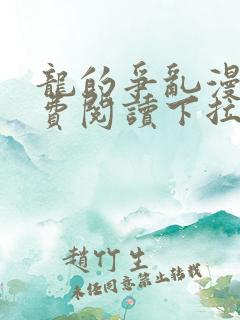 龍的爭亂漫
費閱讀下拉
趙竹生
未经同意禁止转载